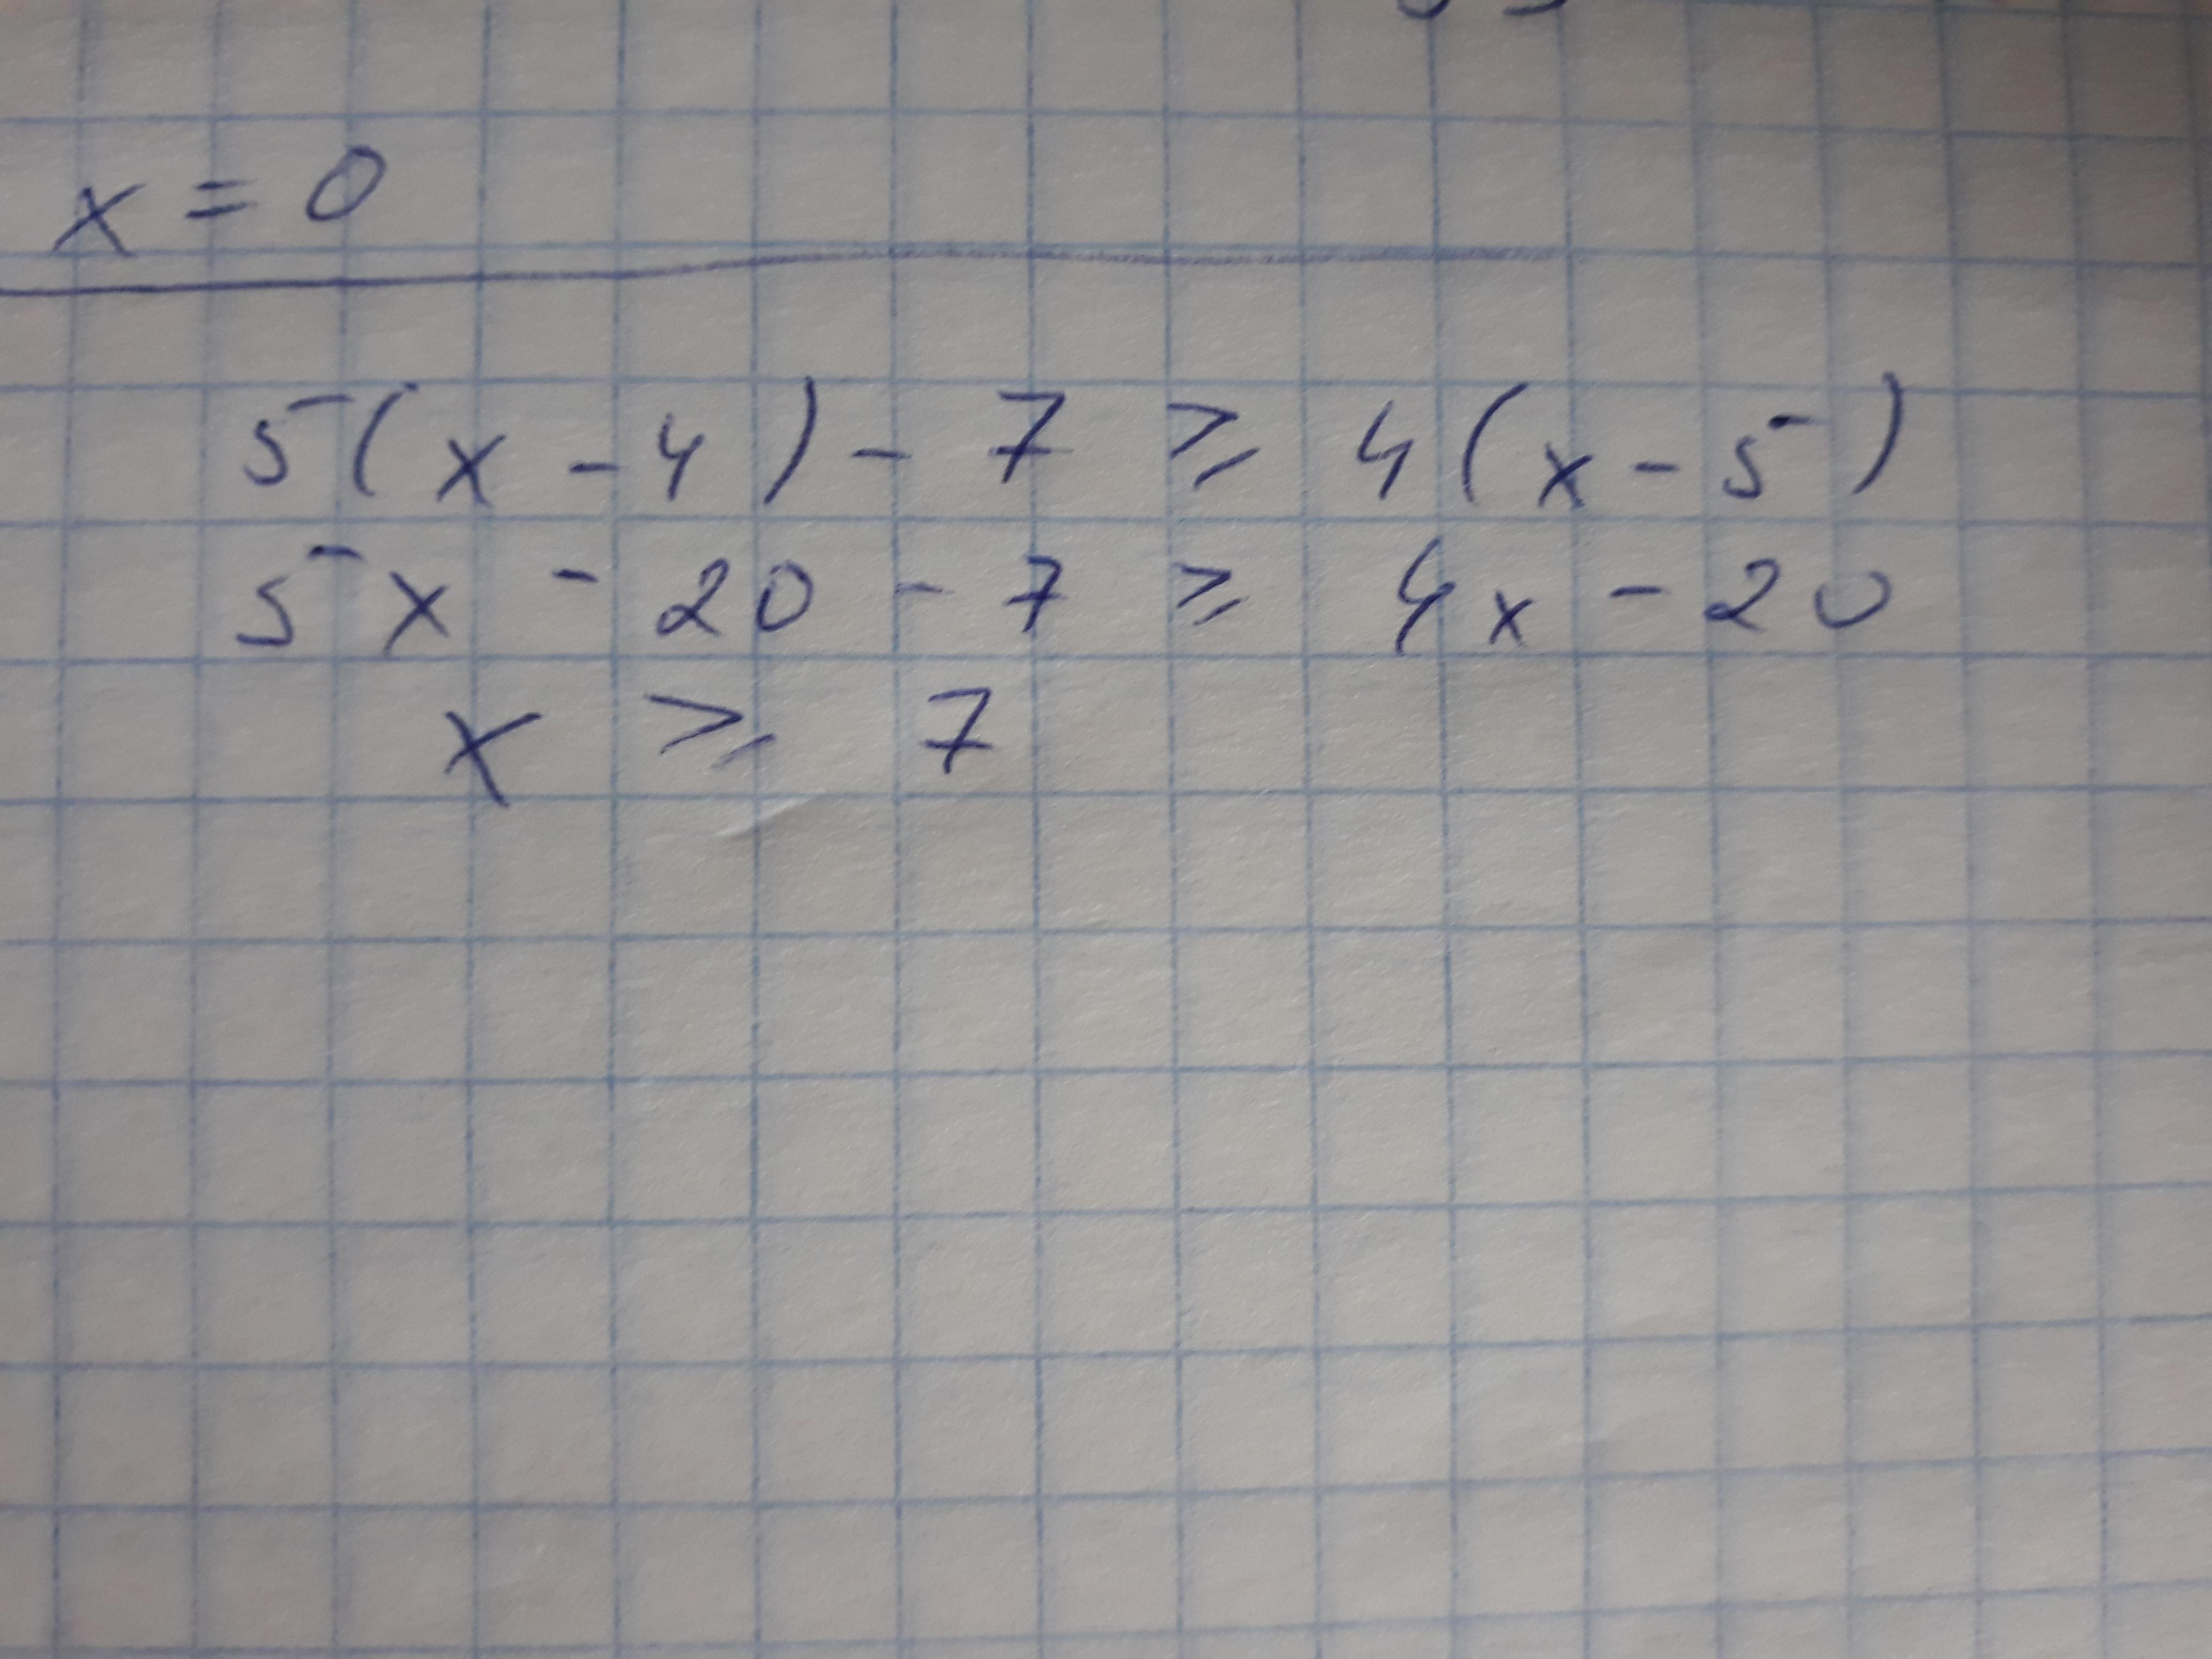 x = 0
5(x - 4) - 7 ⩾ 4(x - 5)
5x - 20 - 7 ⩾ 4x - 20
x ⩾ 7